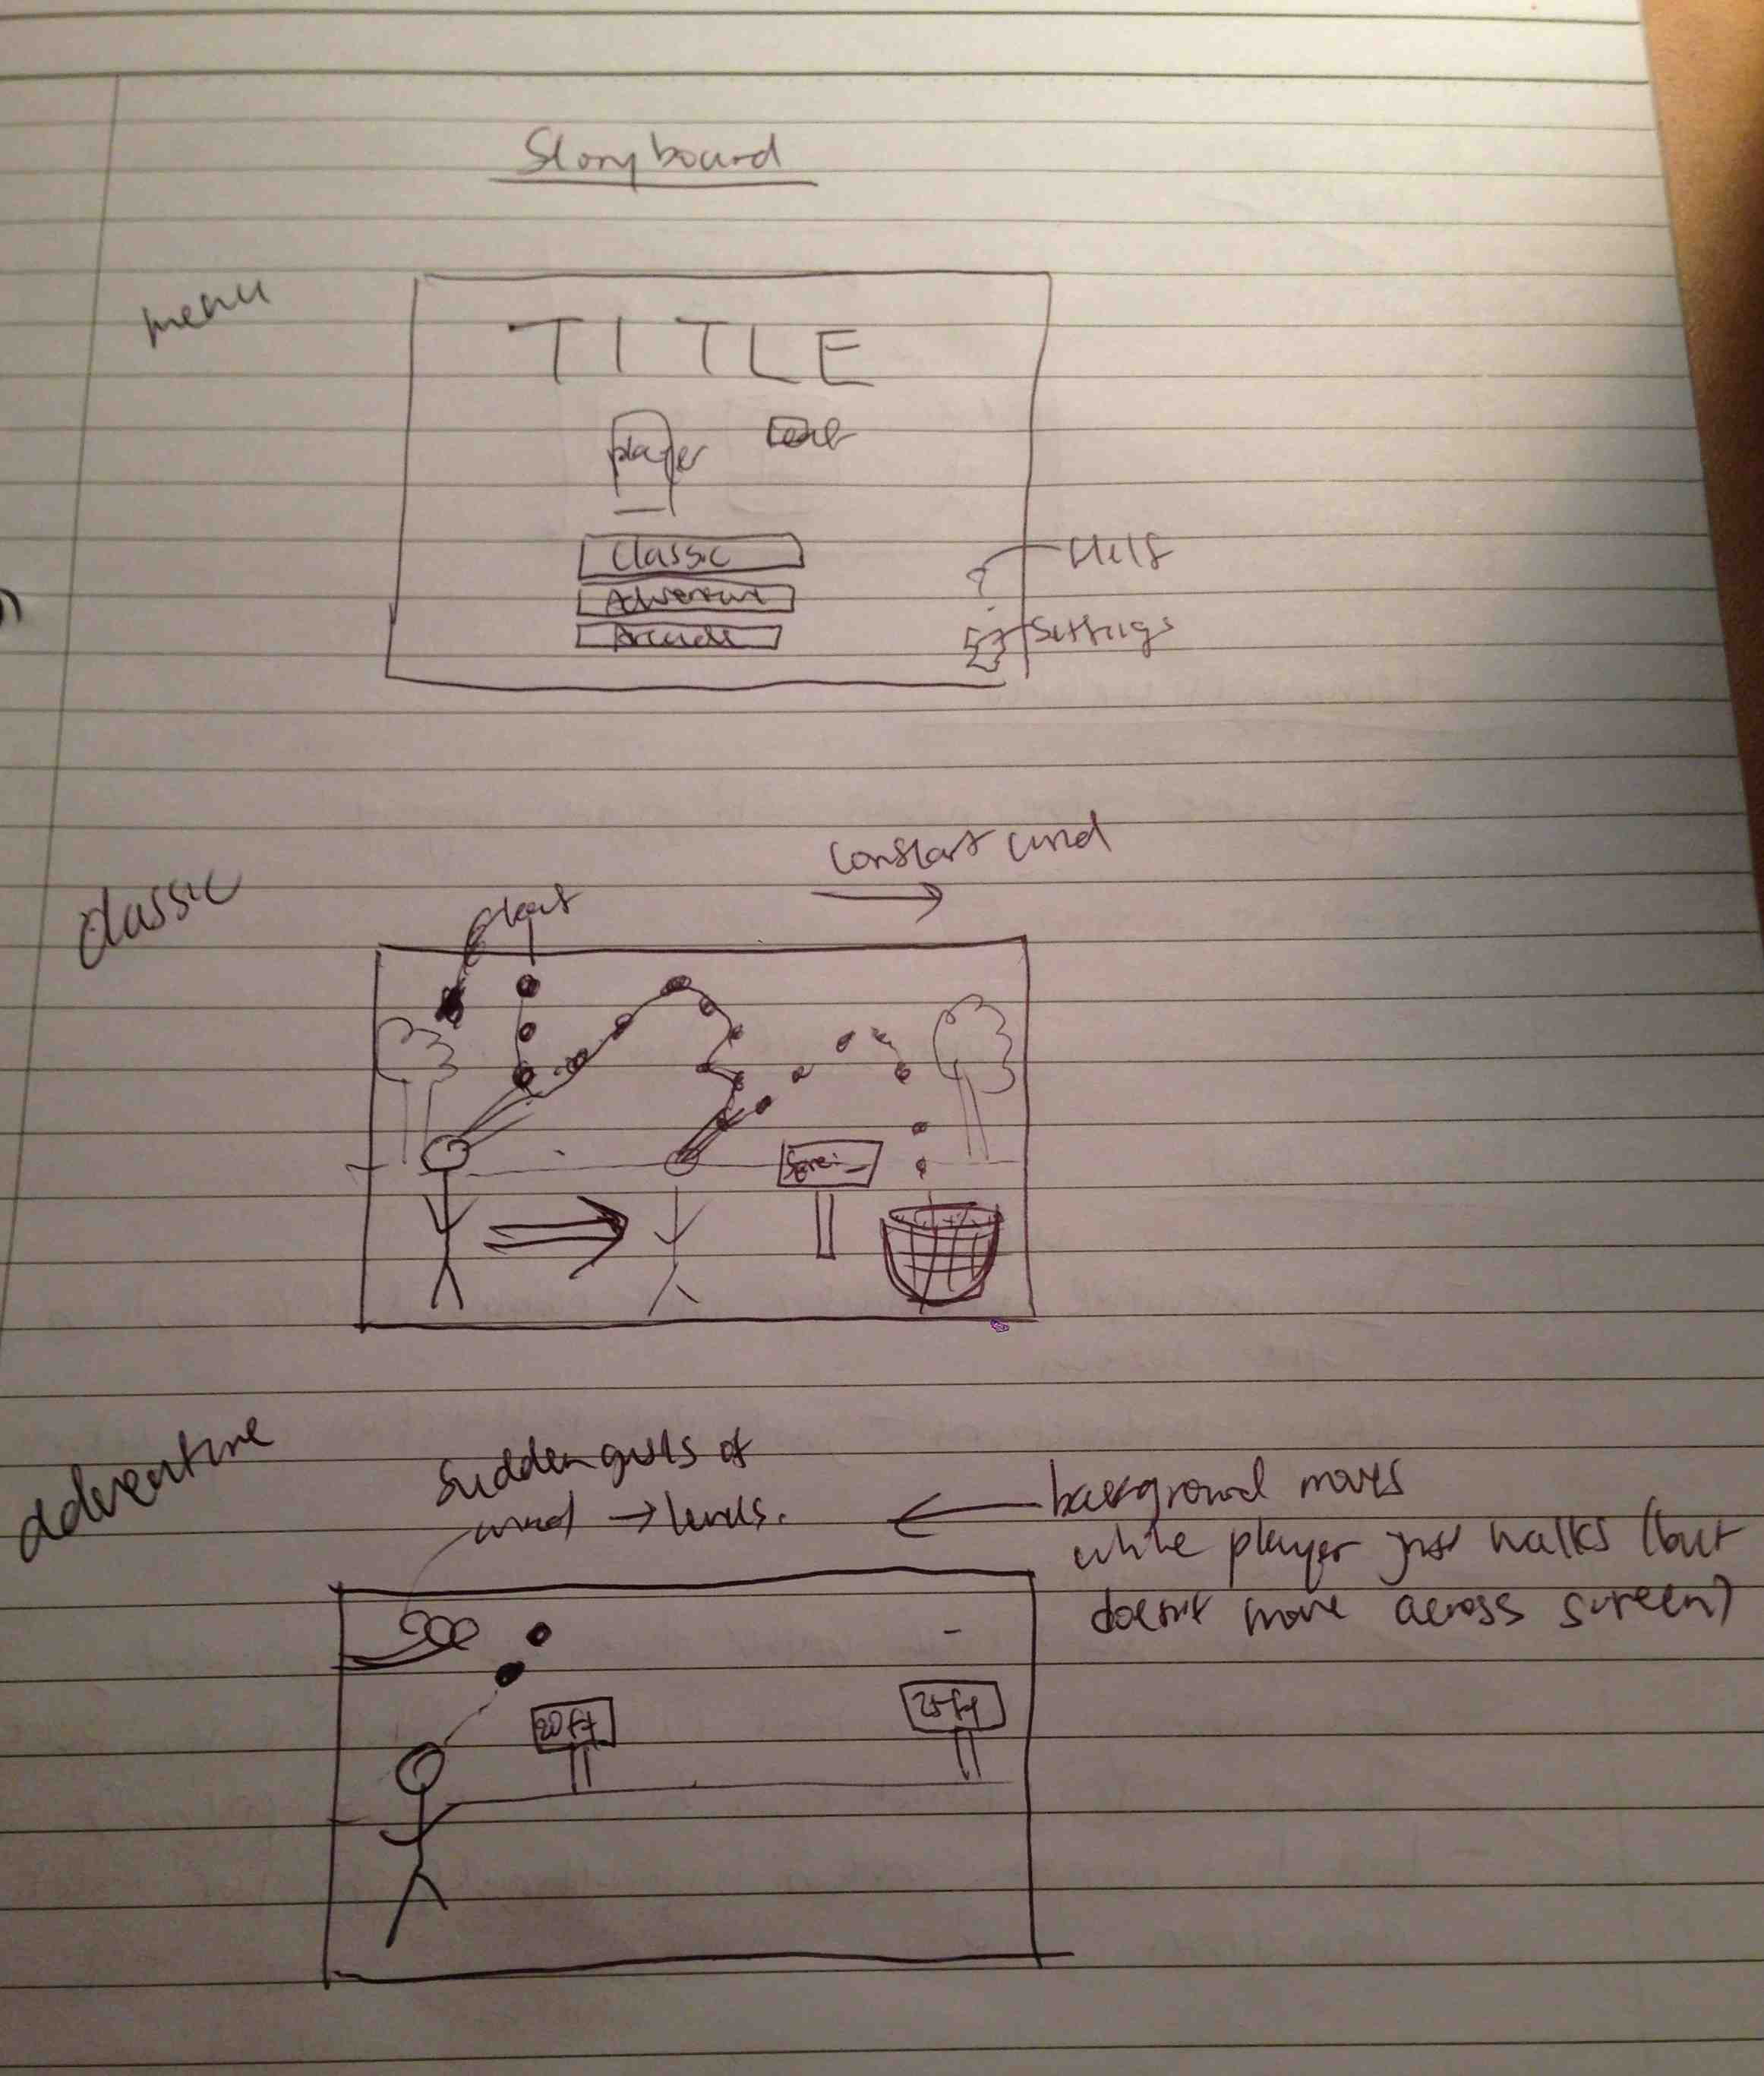 Storyboard
menu
TITLE
player
Classic
Adventure
Arcade
Help
Settings
classic
constant wind
adventure
sudden gusts of
wind → levels.
← background moves
while player just walks (but
doesn't move across screen)
20 ft
25 ft